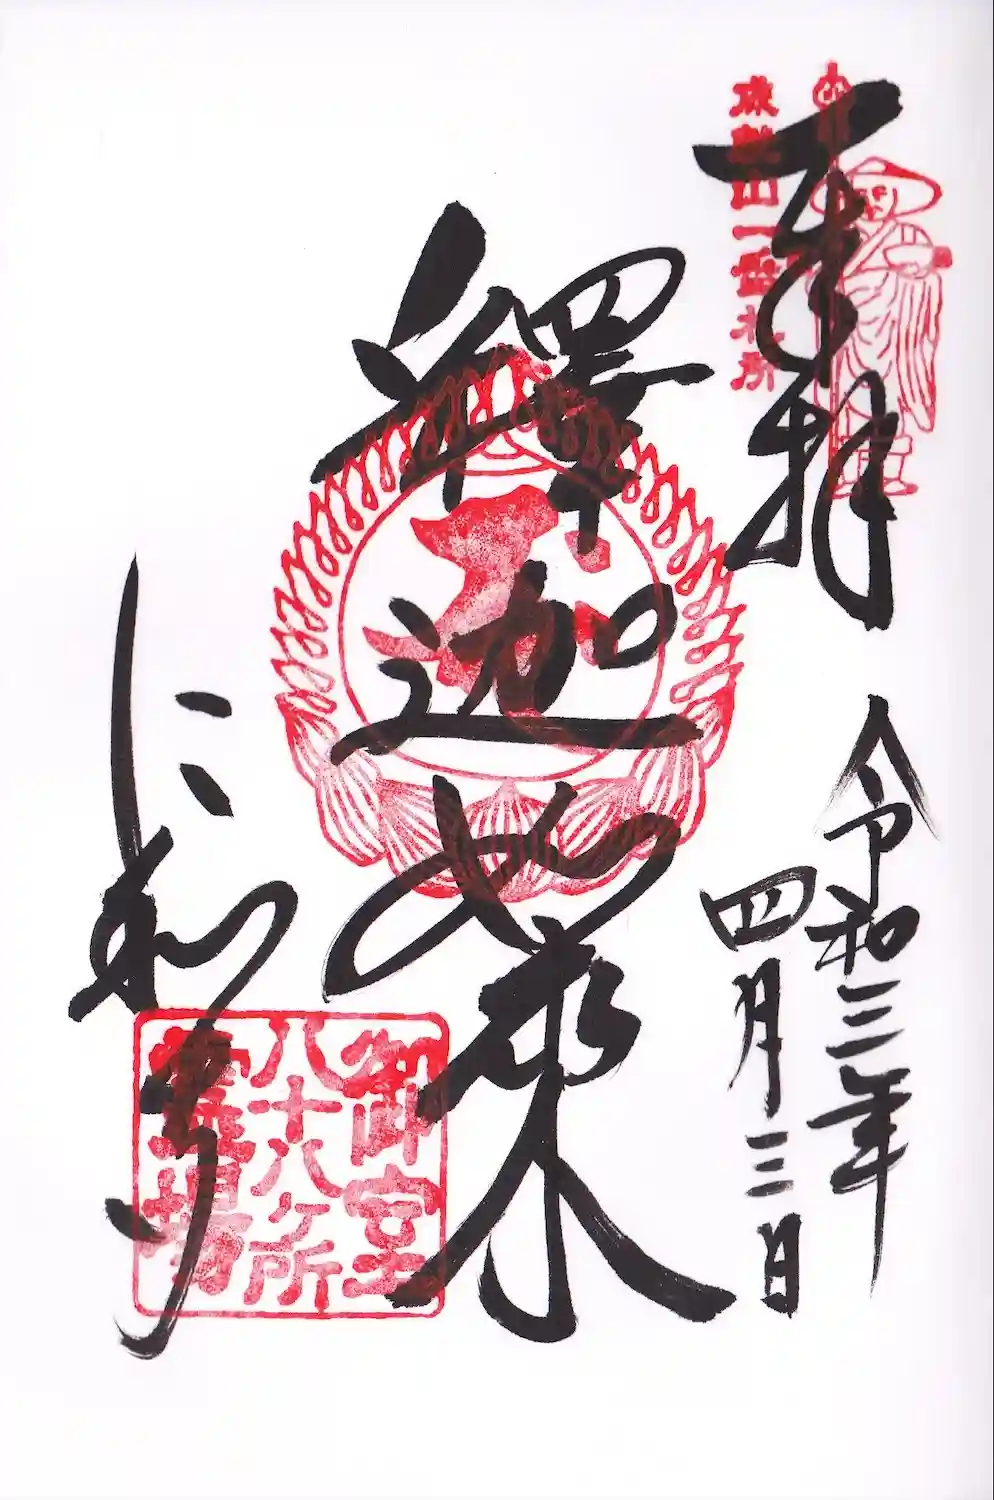 奉拝
成就山一番札所
令和三年
四月三日
釋迦如来
仁和寺
御室
八十八ヶ所
霊場